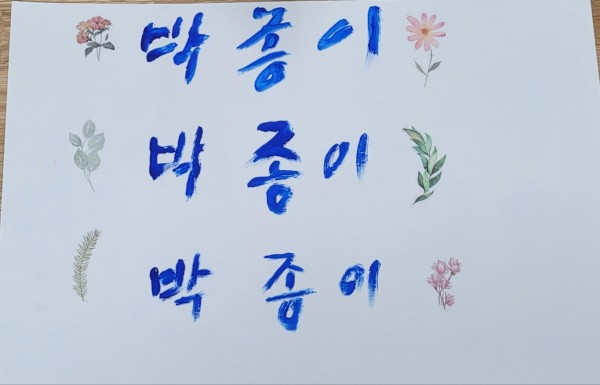 박 종 이
박 종 이
박 종 이